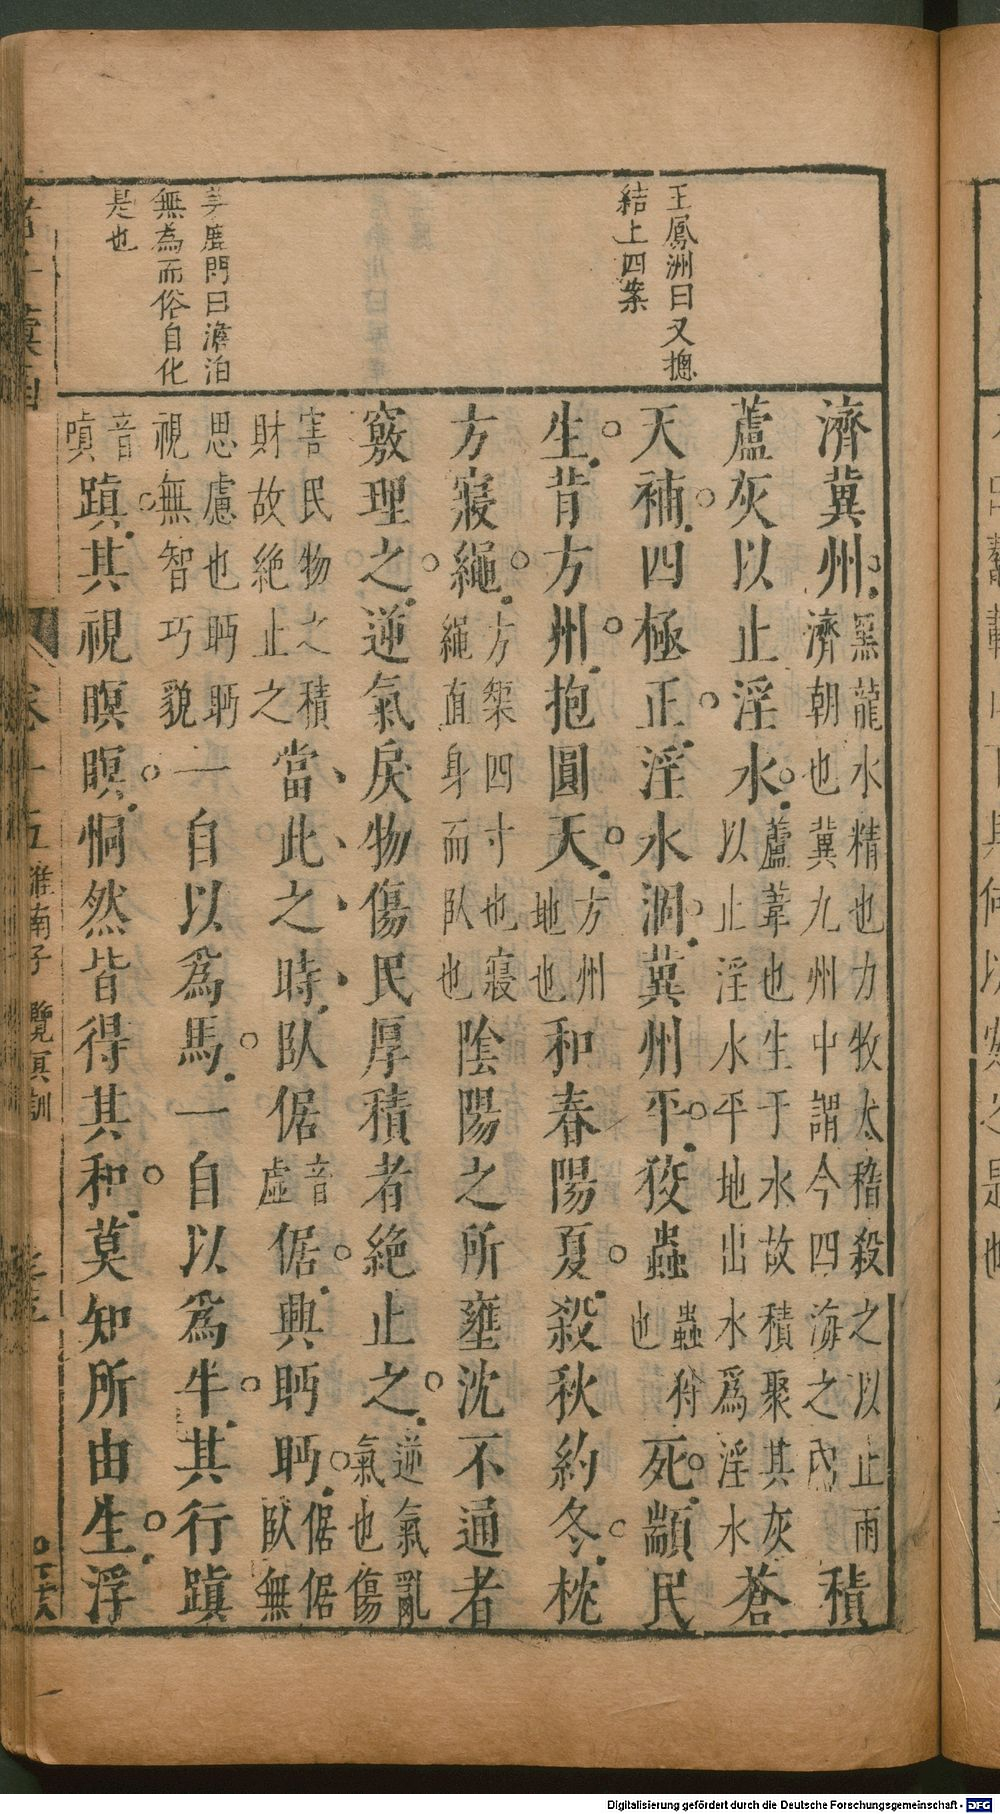 王鳳洲曰又摠
結上四案
茅鹿門曰澹泊
無為而俗自化
是也
濟冀州黑龍水精也力牧太稽殺之以止雨濟朝也冀九州中謂今四海之內積
蘆灰以止淫水蘆葦也生于水故積聚其灰以止淫水平地出水爲淫水蒼
天補四極正淫水涸冀州平狡蟲蟲狩也死顓民
生背方州抱圓天方州地也和春陽夏殺秋約冬枕
方寢繩方榘四寸也寢繩直身而臥也陰陽之所壅沈不通者
竅理之逆氣戾物傷民厚積者絶止之逆氣亂氣也傷
害民物之積財故絶止之當此之時臥倨音虛倨興眄眄倨倨臥無
思慮也眄眄視無智巧貌一自以爲馬一自以爲牛其行蹎
音嗔蹎其視瞑瞑恫然皆得其和莫知所由生浮
卷十五淮南子 覽冥訓
Digitalisierung gefördert durch die Deutsche Forschungsgemeinschaft - DFG